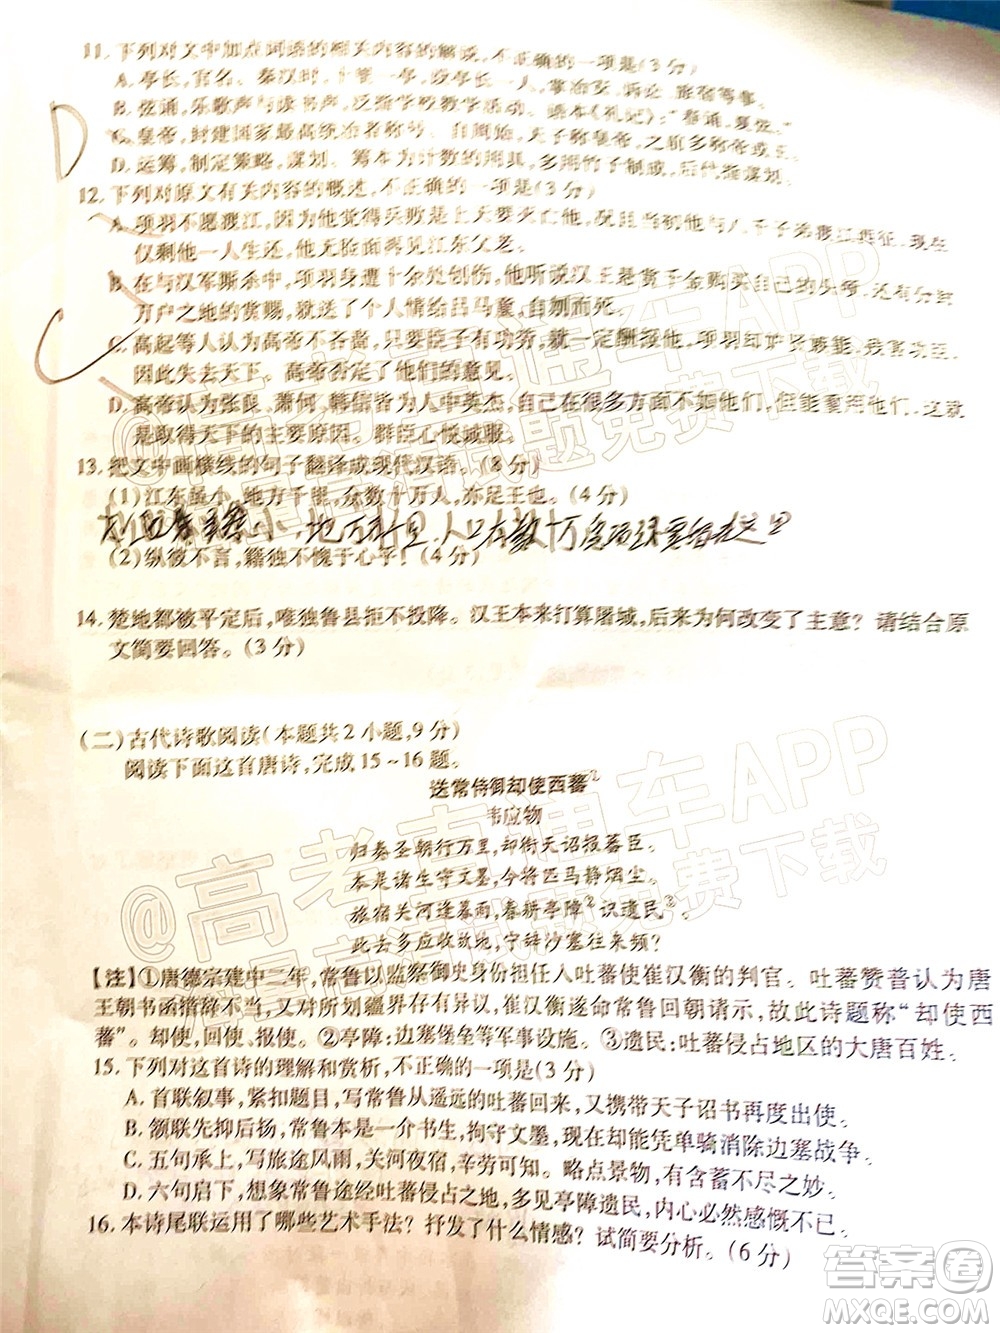 11. 下列对文中加点词语的相关内容的解说,不正确的一项是(3分)
A. 亭长,官名。秦汉时十里一亭,设亭长一人,掌治安、诉讼、负责停留旅客等事。
B. 弦诵,乐歌声与读书声,泛指学校教学活动。语本《礼记》:"春诵,夏弦。"
C. 皇帝,封建国家最高统治者称号。自周始,天子称皇帝,之前多称帝、王。
D. 运筹,制定策略,谋划。筹为计数的用具,多用竹子制成,后代指谋划。
D
12. 下列对原文有关内容的概述,不正确的一项是(3分)
A. 项羽不愿渡江,因为他觉得兵败是上天要灭亡他,且当初他与八千子弟渡江西征,现在
仅剩他一人生还,他无脸面再见江东父老。
B. 在与汉军厮杀中,项羽身遭十余处创伤,他听说汉王悬赏千金购买自己的头颅,还有分封
万户之地的赏赐,就送了个人情给吕马童,自刎而死。
C. 高起等人认为高帝不吝啬,只要臣子有功劳,就一定酬报他。项羽却妒贤嫉能,残害功臣,
因此失去天下。高帝同意了他们的意见。
C
D. 高帝认为张良、萧何、韩信皆为人中英杰,自己在很多方面不如他们,但能重用他们,这就
是取得天下的主要原因。群臣心悦诚服。
13. 把文中画横线的句子翻译成现代汉语。(8分)
(1)江东虽小,地方千里,众数十万人,亦足王也。(4分)
小,地方千里,人口有数十万
(2)纵彼不言,籍独不愧于心乎!(4分)
14. 楚地都被平定后,唯独鲁县拒不投降。汉王本来打算屠城,后来为何改变了主意?请结合原
文简要回答。(3分)
(二)古代诗歌阅读(本题共2小题,9分)
阅读下面这首唐诗,完成15~16题。
送常侍御却使西蕃
韦应物
归奏圣朝行万里,却衔天诏报蕃臣。
本是诸生守文墨,今将匹马静烟尘。
旅宿关河逢暮雨,春耕亭障②识遗民③。
此去多应收故地,宁辞沙塞往来频?
【注】①唐德宗建中二年,常鲁以监察御史身份担任入吐蕃使崔汉衡的判官。吐蕃赞普认为唐
王朝书函措辞不当,又对所划疆界存有异议,崔汉衡遂派常鲁回朝请示,故此诗题称"却使西
蕃"。却使,回使、报使。②亭障:边塞堡垒等军事工事。③遗民:吐蕃侵占地区的大唐百姓。
15. 下列对这首诗的理解和赏析,不正确的一项是(3分)
A. 首联叙事,紧扣题目,写常鲁从遥远的吐蕃回来,又携带天子诏书再度出使。
B. 颔联先抑后扬,常鲁本是一介书生,拘守文墨,现在却能凭单骑消除边塞战争。
C. 五句承上,写旅途风雨,关河夜宿,辛劳可知。略点景物,有含蓄不尽之妙。
D. 六句启下,想象常鲁途经吐蕃侵占之地,多见亭障遗民,内心必然感慨不已。
16. 本诗尾联运用了哪些艺术手法?抒发了什么情感?试简要分析。(6分)
@高考直通车APP
@高考直通车APP
答案卷
MXQE.COM